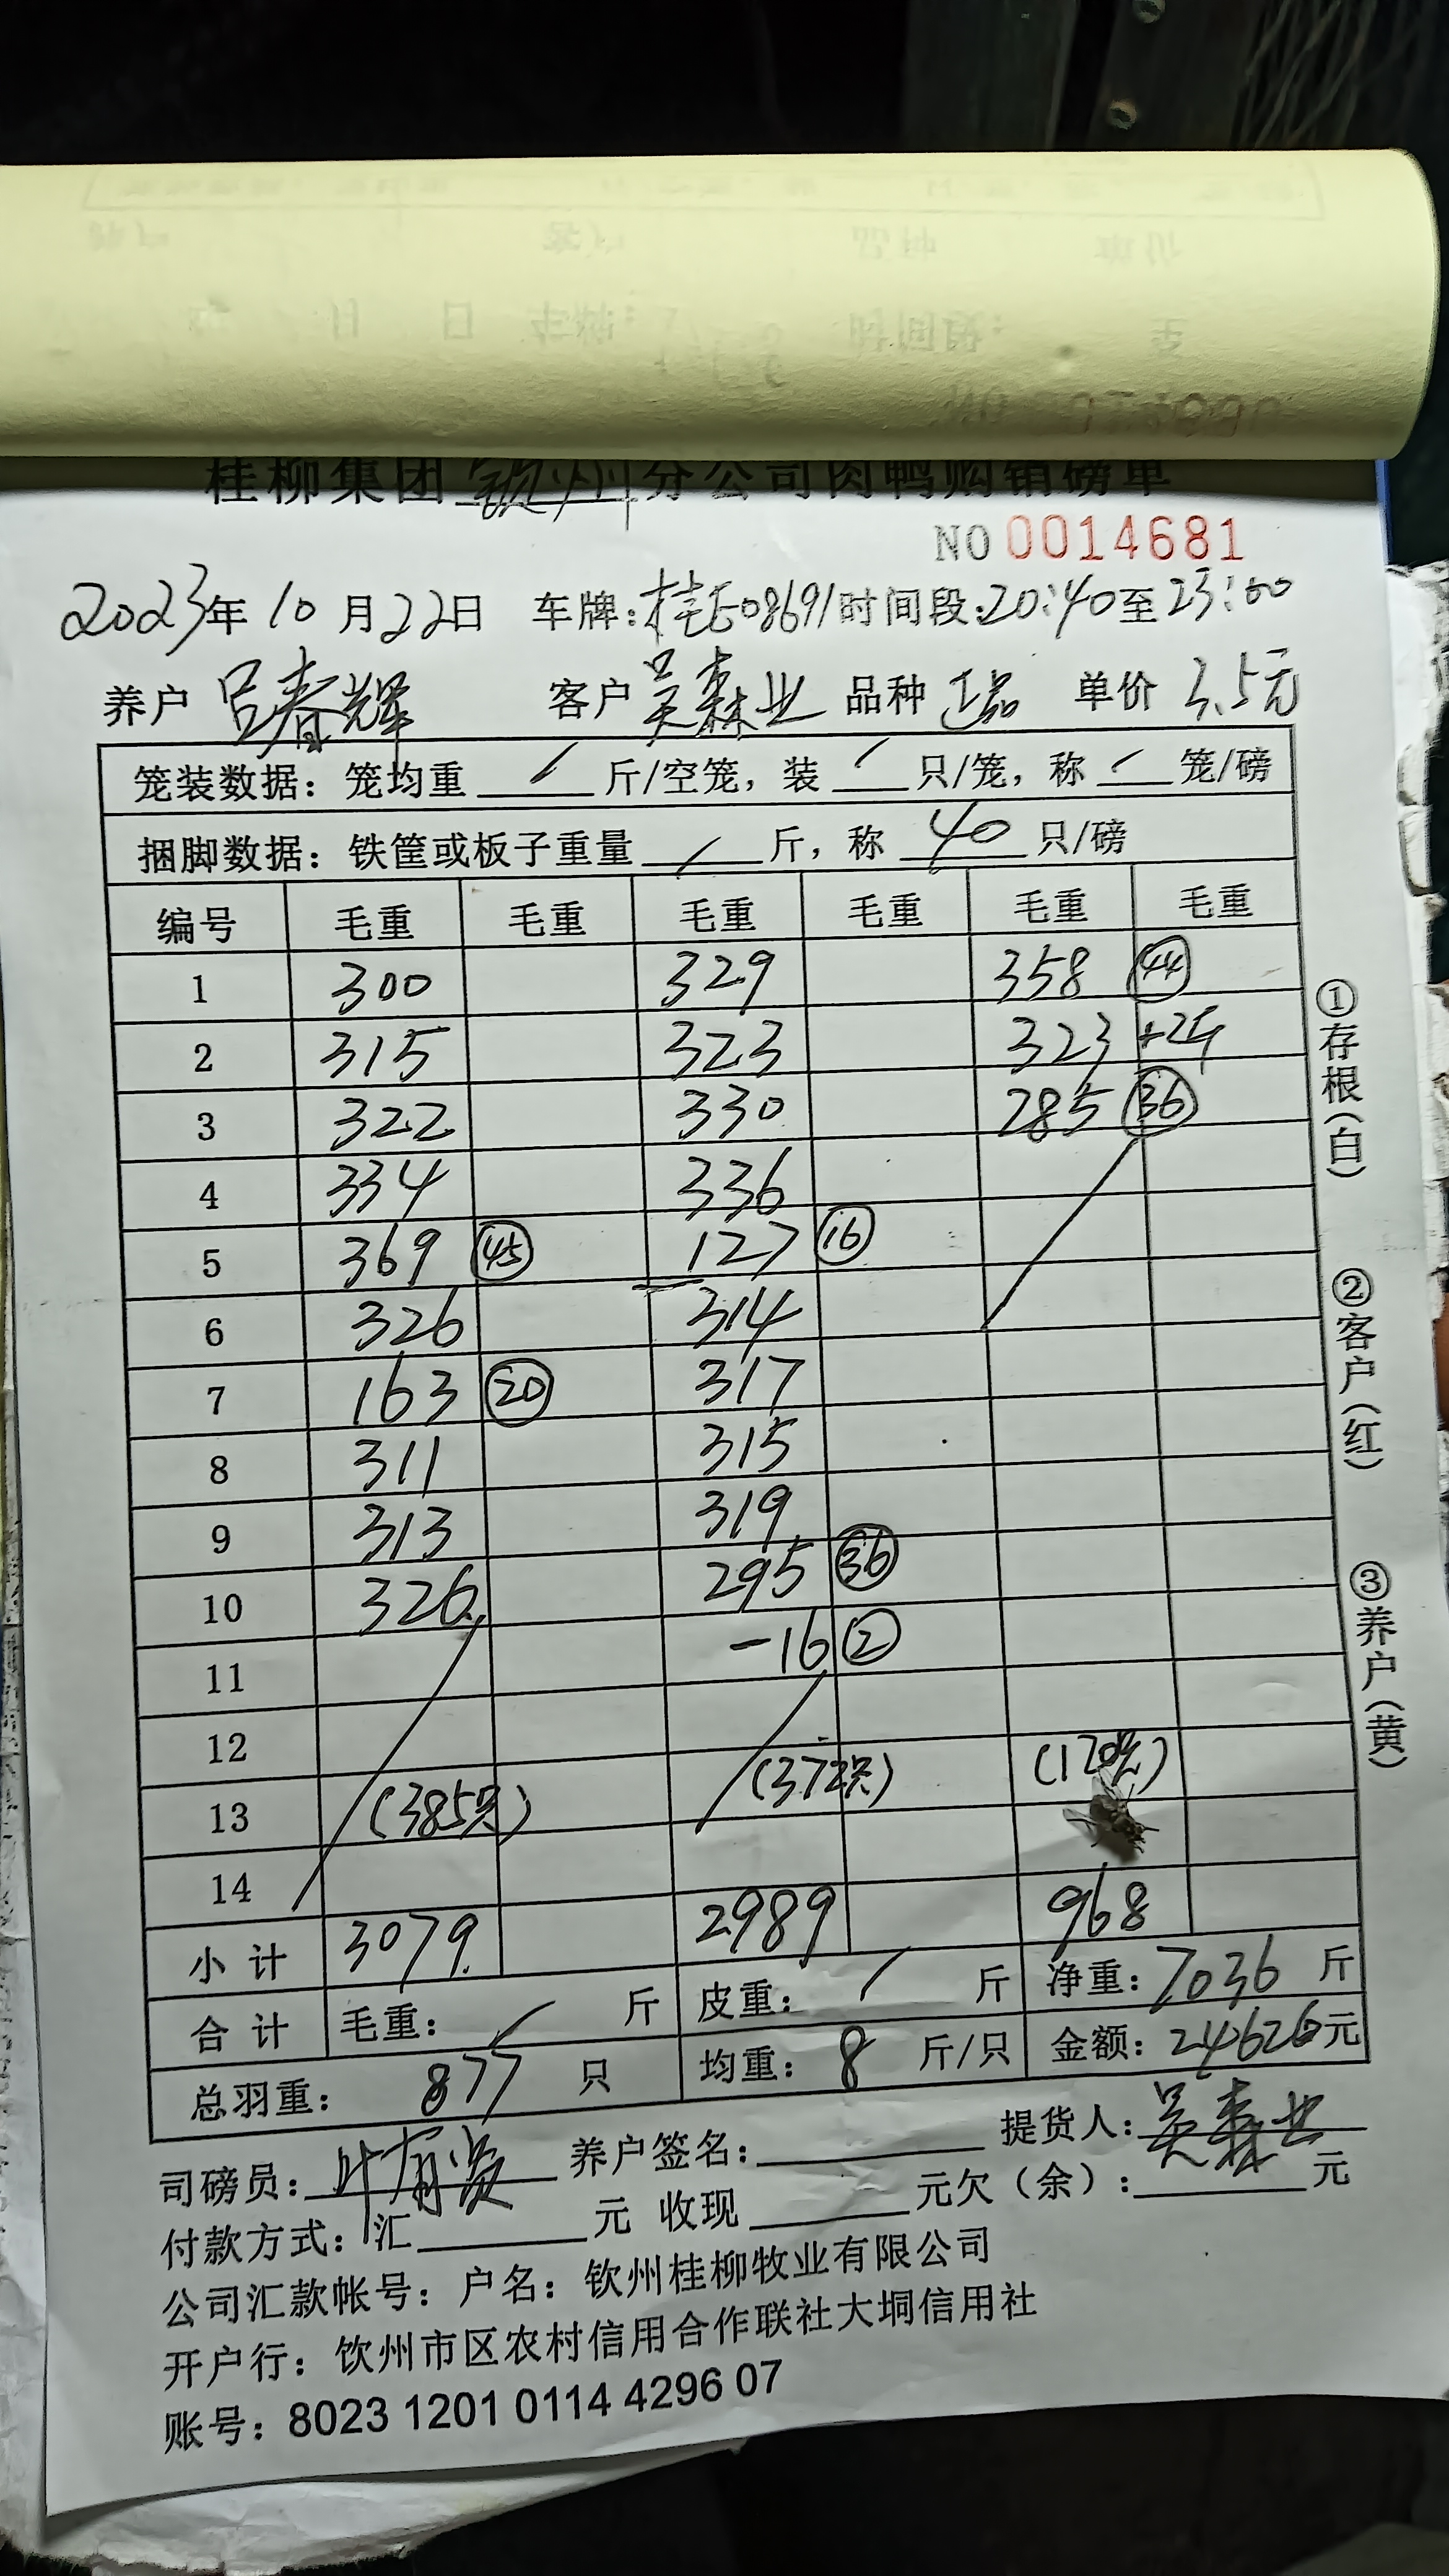 桂柳集团 钦州 分公司肉鸭购销磅单
NO 0014681
2023年10月22日 车牌:桂E08691 时间段:20:40至23:00
养户 吕春辉 客户 吴森业 品种 正品 单价 3.5元
笼装数据: 笼均重 / 斤/空笼, 装 / 只/笼, 称 / 笼/磅
捆脚数据: 铁筐或板子重量 / 斤, 称 40 只/磅
编号 毛重 毛重 毛重 毛重 毛重 毛重
1 300 329 358 ㊹
2 315 323 323 +2斤
3 322 330 285 ㊱
4 334 336
5 369 ㊺ 127 ⑯
6 326 314
7 163 ⑳ 317
8 311 315
9 313 319
10 326 295 ㊱
11 -16 ②
12
13 (385只) (372只) (120只)
14
小计 3079 2989 968
合计 毛重: / 斤 皮重: / 斤 净重: 7036 斤
总羽重: 877 只 均重: 8 斤/只 金额: 24626元
司磅员: 养户签名: 提货人: 吴森业
付款方式: 汇 元 收现 元欠(余): 元
公司汇款帐号: 户名: 钦州桂柳牧业有限公司
开户行: 钦州市区农村信用合作联社大垌信用社
账号: 8023 1201 0114 4296 07
①存根(白)
②客户(红)
③养户(黄)